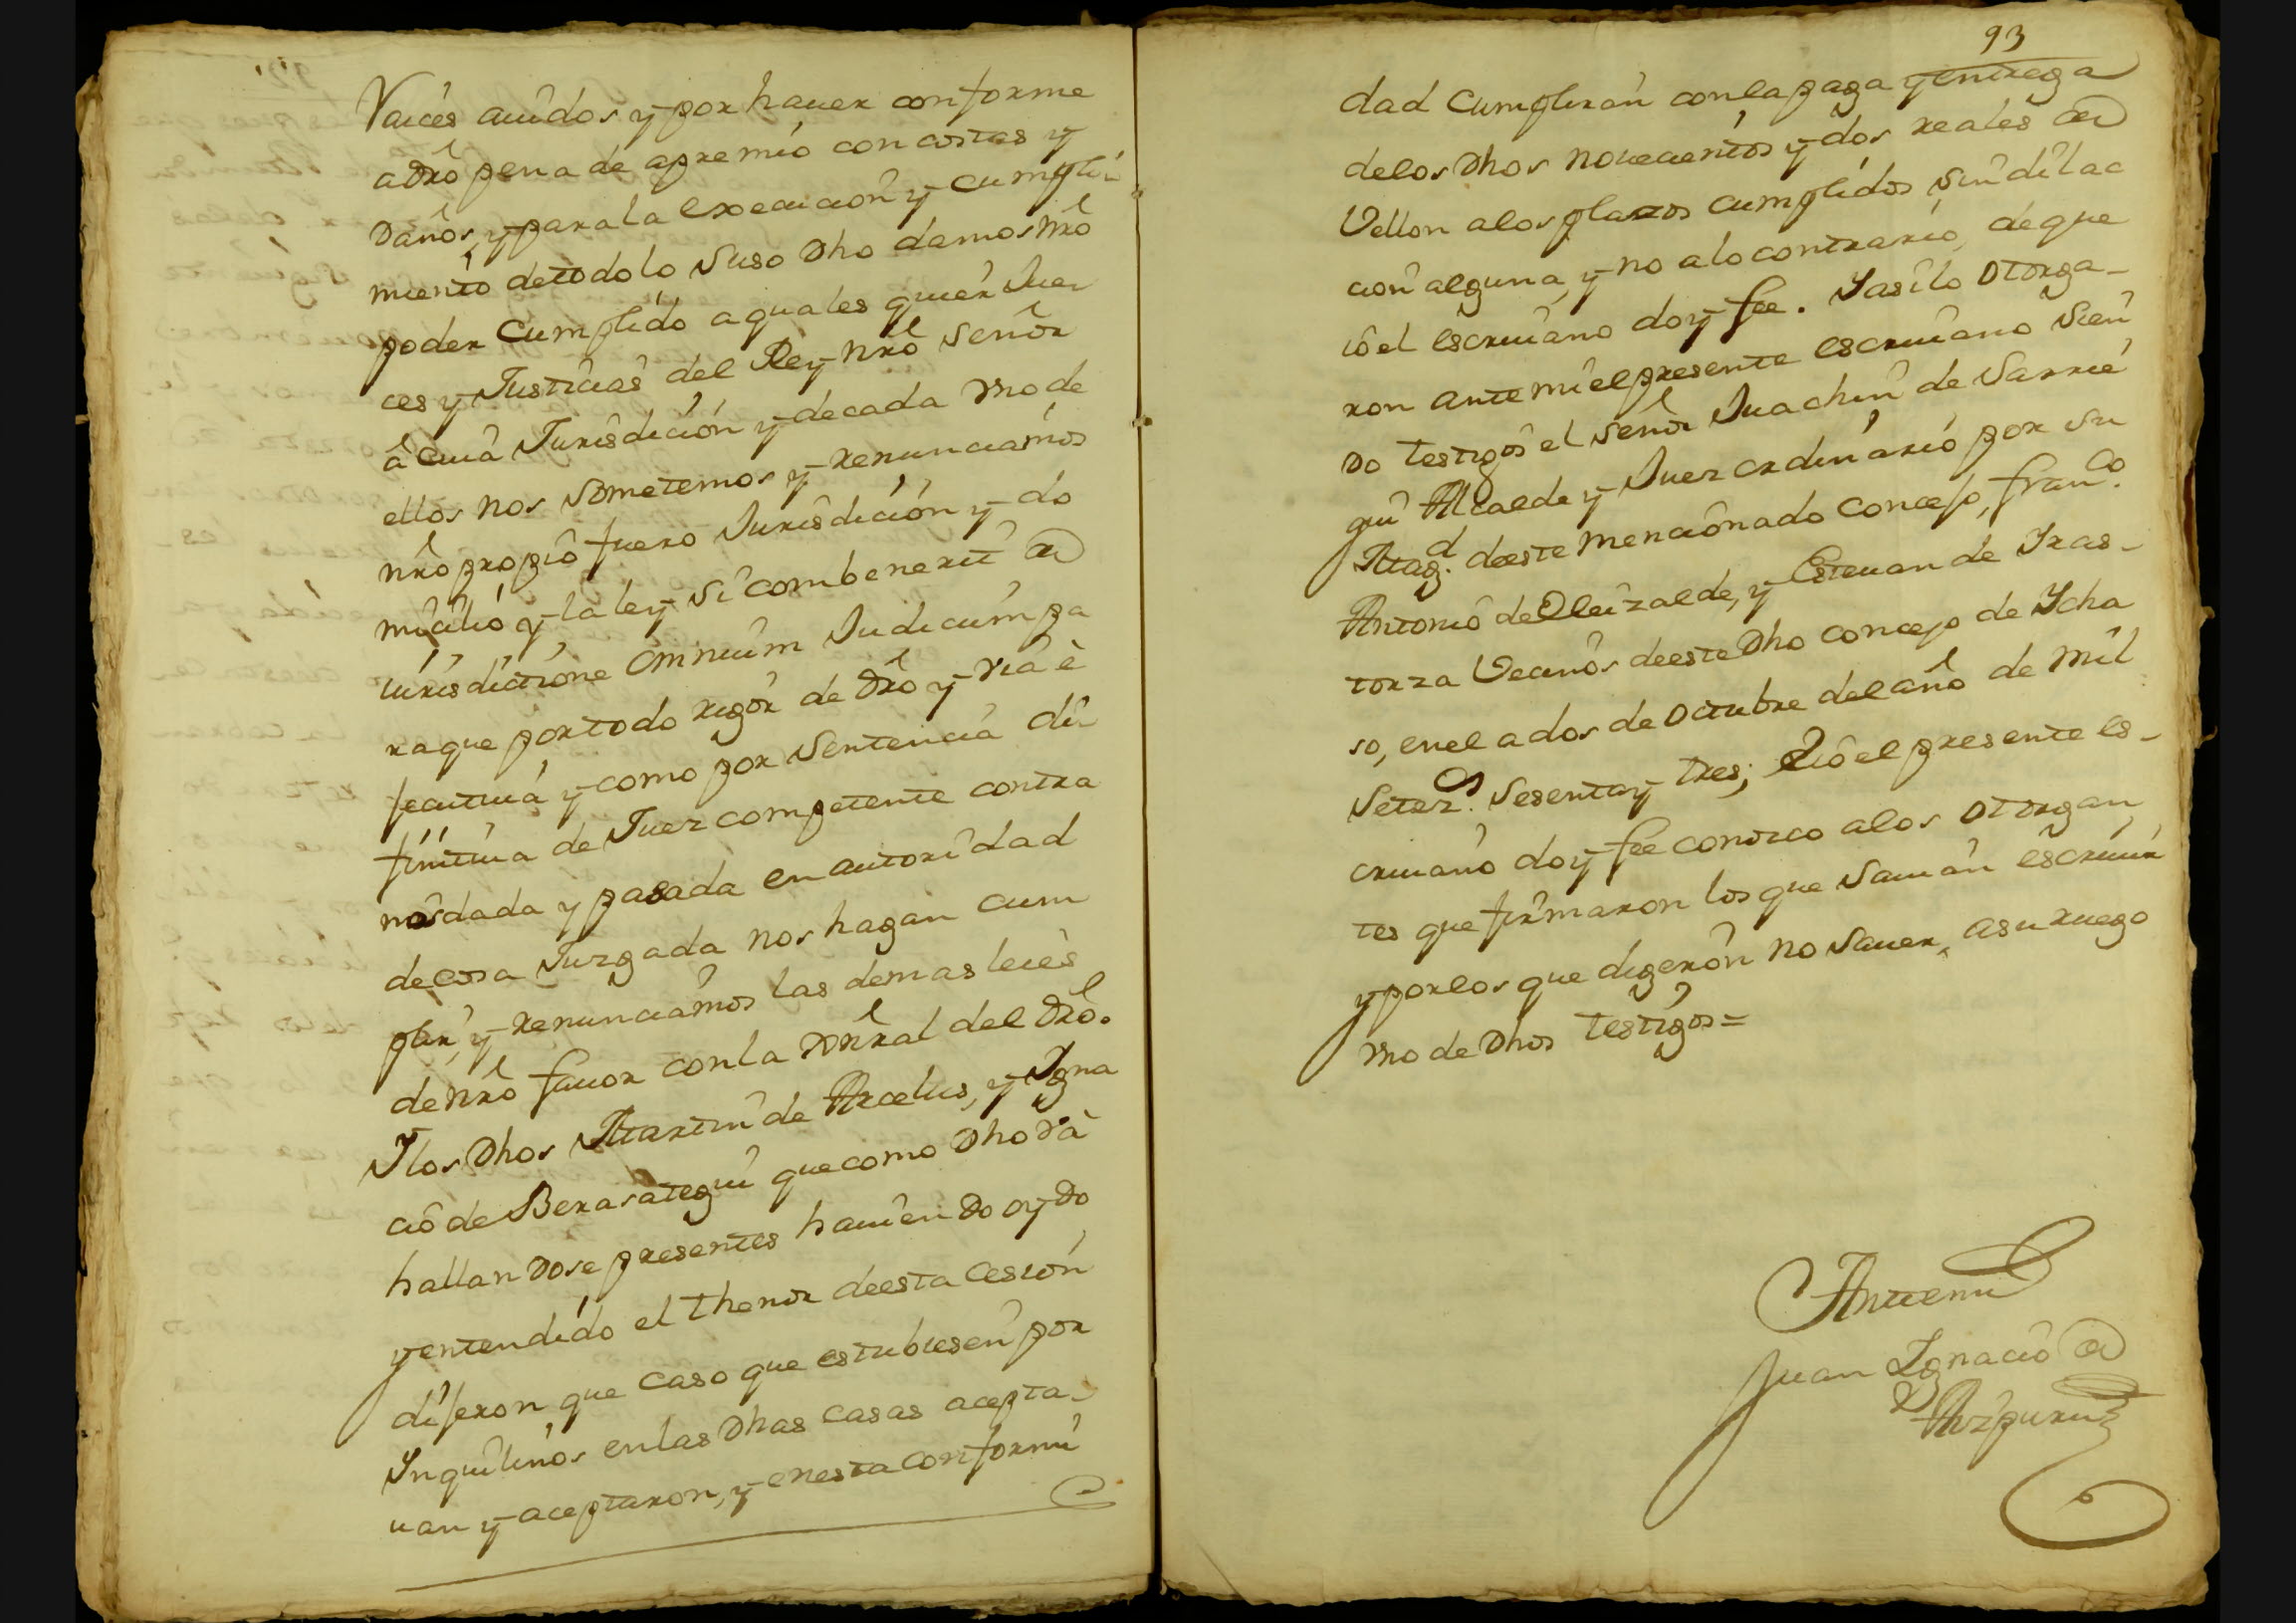 Raices auidos y por hauer conforme
a dr̃o pena de apremio con costas y
daños, y para la execucion y cumpli
miento de todo lo suso dho damos nr̃o
poder cumplido a quales quier Jue
ces y Justicias del Rey nr̃o señor
â cuia Jurisdicion y de cada vno de
ellos nos sometemos y renunciamos
nr̃o propio fuero Jurisdicion y do
micilio y la ley si combenerit de
iurisdictione omnium Judicum pa
ra que por todo rigor de dr̃o y via è
secutiua y como por Sentencia di
finitiua de Juez competente contra
nos dada y pasada en autoridad
de cosa Juzgada nos hagan cum
plir, y renunciamos las demas leies
de nr̃o fauor con la gnr̃al del dr̃o.
Y los dhos Martin de Arcelus, y Igna
cio de Berasategui que como dho va
hallandose presentes hauiendo oydo
y entendido el thenor de esta Cesion
dijeron que caso que estubiesen por
Inquilinos en las dhas casas acepta
uan y aceptaron, y en esta conformi
93
dad Cumpliran con la paga y entrega
de los dhos novecientos y dos reales de
Vellon a los plazos cumplidos sin dilac
cion alguna, y no a lo contrario, de que
io el escriuano doy fee. Y asi lo otorga-
ron ante mi el presente escriuano sien
do testigos el señor Juachin de Sarrie
gui Alcalde y Juez ordinario por su
Mag.d de este mencionado Concejo, fran.co
Antonio de Oleizalde, y Esteuan de Yras-
torza Vecinos de este dho concejo de Ycha
so, en el a dos de Octubre del año de mil
Setez.s Sesenta y tres; E io el presente es-
criuano doy fee conozco a los otorgan
tes que firmaron los que sauian escriuir
y por los que digeron no sauer, a su ruego
vno de dhos testigos=
Ante mi
Juan Ignacio de
Aizpuru